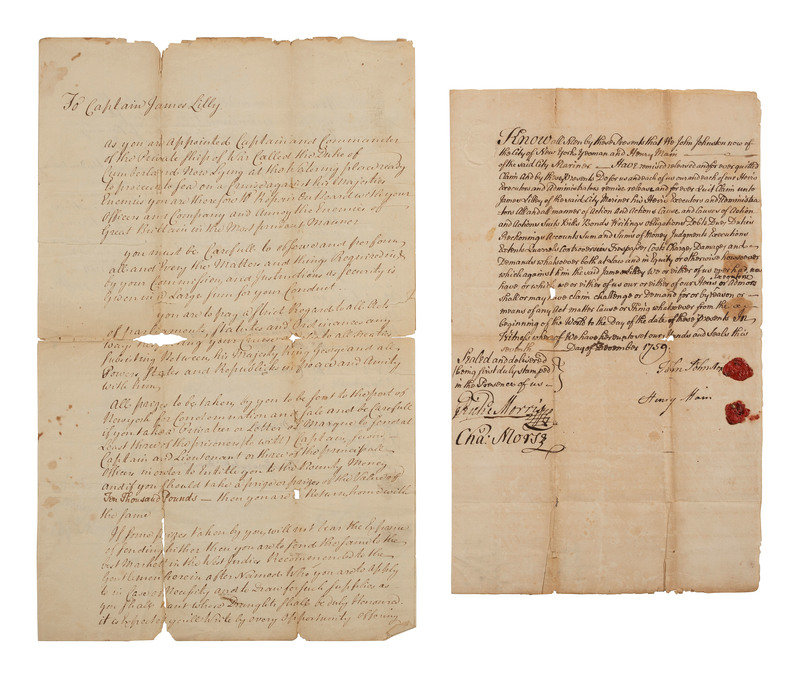 To Captain James Lilly
As you are appointed Captain and Commander
of the Private Ship of War Called the Duke of
Cumberland Now Lying at the Watering place ready
to proceed to Sea on a Cruize against his Majesties
Enemies you are therefore to Repair on board with your
Officers and Company and Annoy the Enemies of
Great Brittain in the Most prudent Manner
you must be Carefull to observe and perform
all and Every the Matters and things Required in
by your Commission and Instructions as Security is
Given in a Large Sum for your Conduct.
you are to pay a Strict Regard to all Acts
of Parliament, Statutes and Ordinances any
way your and to all
Subsisting Between his Majesty King George and all
Powers, States and Republicks in peace and Amity
with him,
All prizes to be taken by you to be sent to the port of
New york for Condemnation and Sale and be Carefull
if you take a Privateer or Letter of Marque to send at
Least three of the prisoners with Captain
Captain and Lieutenant or three of the principall
Officers in order to Entitle you to the Bounty Money
and if you Should take a prize or prizes of the Value of
Ten Thousand Pounds — then you are to Return home with
the Same
If Some prizes taken by you will not bear the Expence
of sending hither then you are to Send the Same to the
best Markett in the West Indies Recommended to the
Gentlemen herein after Named Who you are to apply
to in Case of Necessity and to Draw for Such Supplies as
you Shall want where Draughts Shall be duly Honoured.
it is expected you'll Write by every Opportunity
Know all Men by these Presents that We John Johnston now of
the City of New York Yeoman and Henry Main
of the said City Mariner — Have remised released and for ever quitted
Claim And by these Presents Do for us and each of us our and each of our Heirs
Executors and Administrators remise release and for ever Quit Claim unto
James Lilley of the said City Mariner his Heirs Executors and Administra
tors All and all manner of Action and Actions Cause and Causes of Action
and Actions Suits Bills Bonds Writings obligations Debts Dues Duties
Reckonings Accounts Sum and Sums of Money Judgments Executions
Extents Quarrels Controversies Trespasses Costs Charge Damages and
Demands whatsoever both at Law and in Equity or otherwise howsoever
which against him the said James Lilley we or either of us ever had, now
have or which we or either of us our or either of our Heirs Executors or Admors
Shall or may have claim challenge or Demand for or by reason or
means of any Act matter Cause or thing whatsoever from the
beginning of the World to the Day of the date of these Presents In
Witness whereof We have hereunto set our Hands and Seals this
Day of December 1759.
Sealed and delivered
being first duly stamped
in the Presence of us
John Johnston
Henry Main
Richd Morris
Chas: Morse